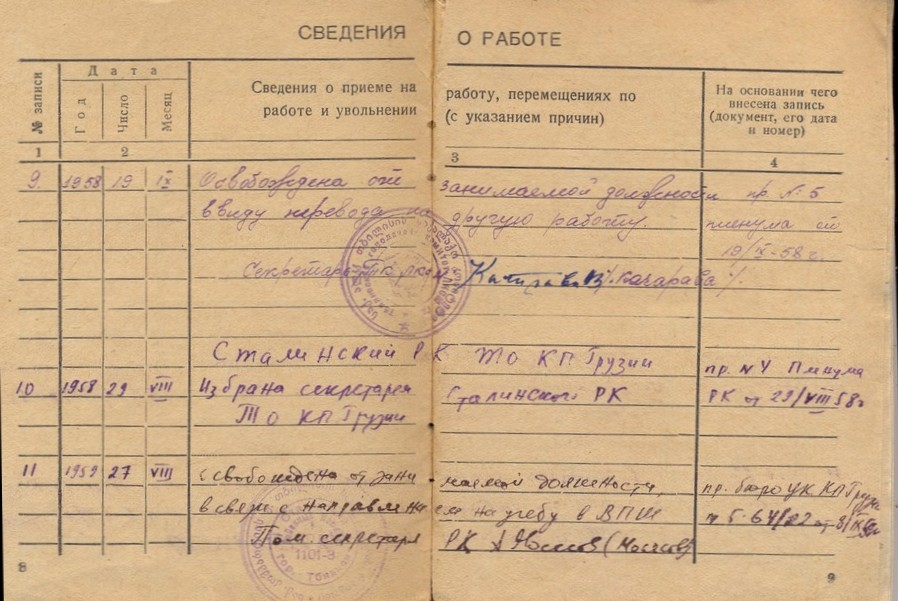 СВЕДЕНИЯ О РАБОТЕ
№ записи
Дата
Год
Число
Месяц
Сведения о приеме на работу, перемещениях по
работе и увольнении (с указанием причин)
На основании чего
внесена запись
(документ, его дата
и номер)
1 2 3 4
9. 1958 19 IX Освобождена от занимаемой должности пр. № 5
ввиду перевода на другую работу. пленума от
19/IX-58 г.
Секретарь /Качарава/.
Сталинский РК ТО КП Грузии пр. № 4 Пленума
10 1958 29 VIII Избрана секретарем Сталинского РК РК от 29/VIII 58 г
ТО КП Грузии
11 1959 27 VIII освобождена от занимаемой должности, пр. бюро ЦК КП Грузии
в связи с направлением на учебу в ВПШ
Пом. секретаря РК
1101-3
8 9